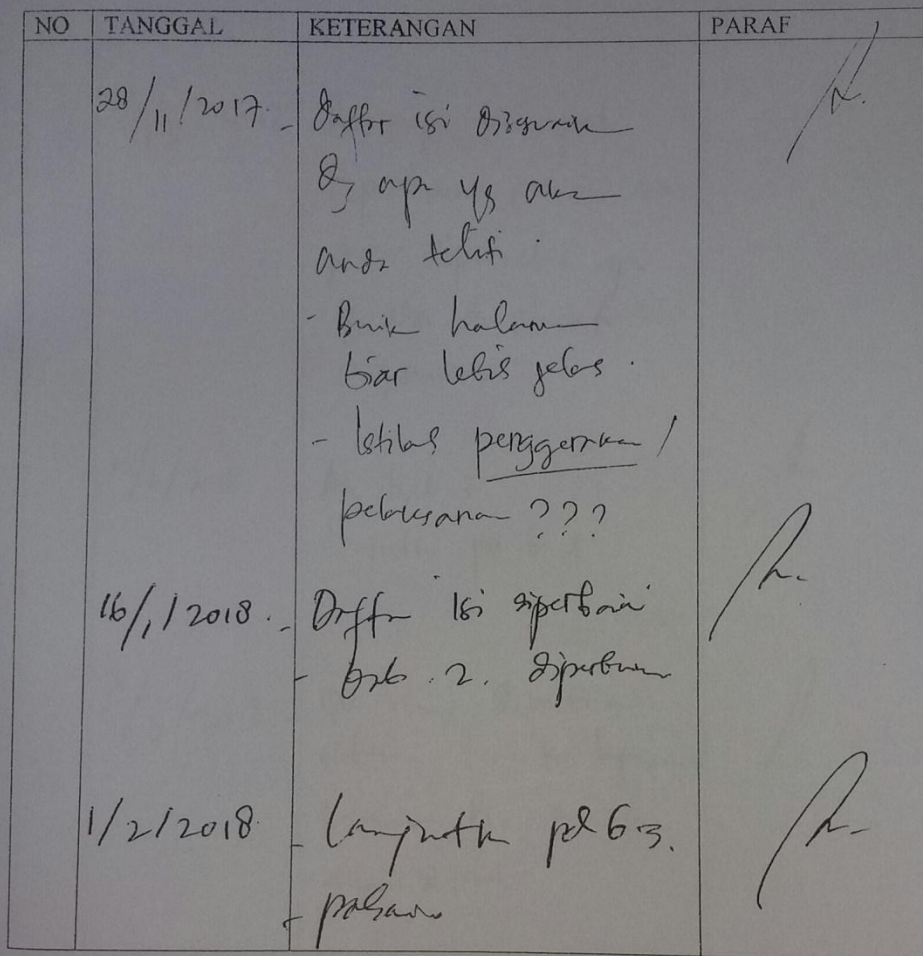 NO TANGGAL KETERANGAN PARAF
28/11/2017. - Daftar isi
apa yg akan
anda teliti.
- halaman
biar lebih jelas.
- Istilah penggerakan /
pelaksanaan ???
16/1/2018. - Daftar isi diperbaiki
- bab. 2. diperbaiki
1/2/2018 - Lanjutkan